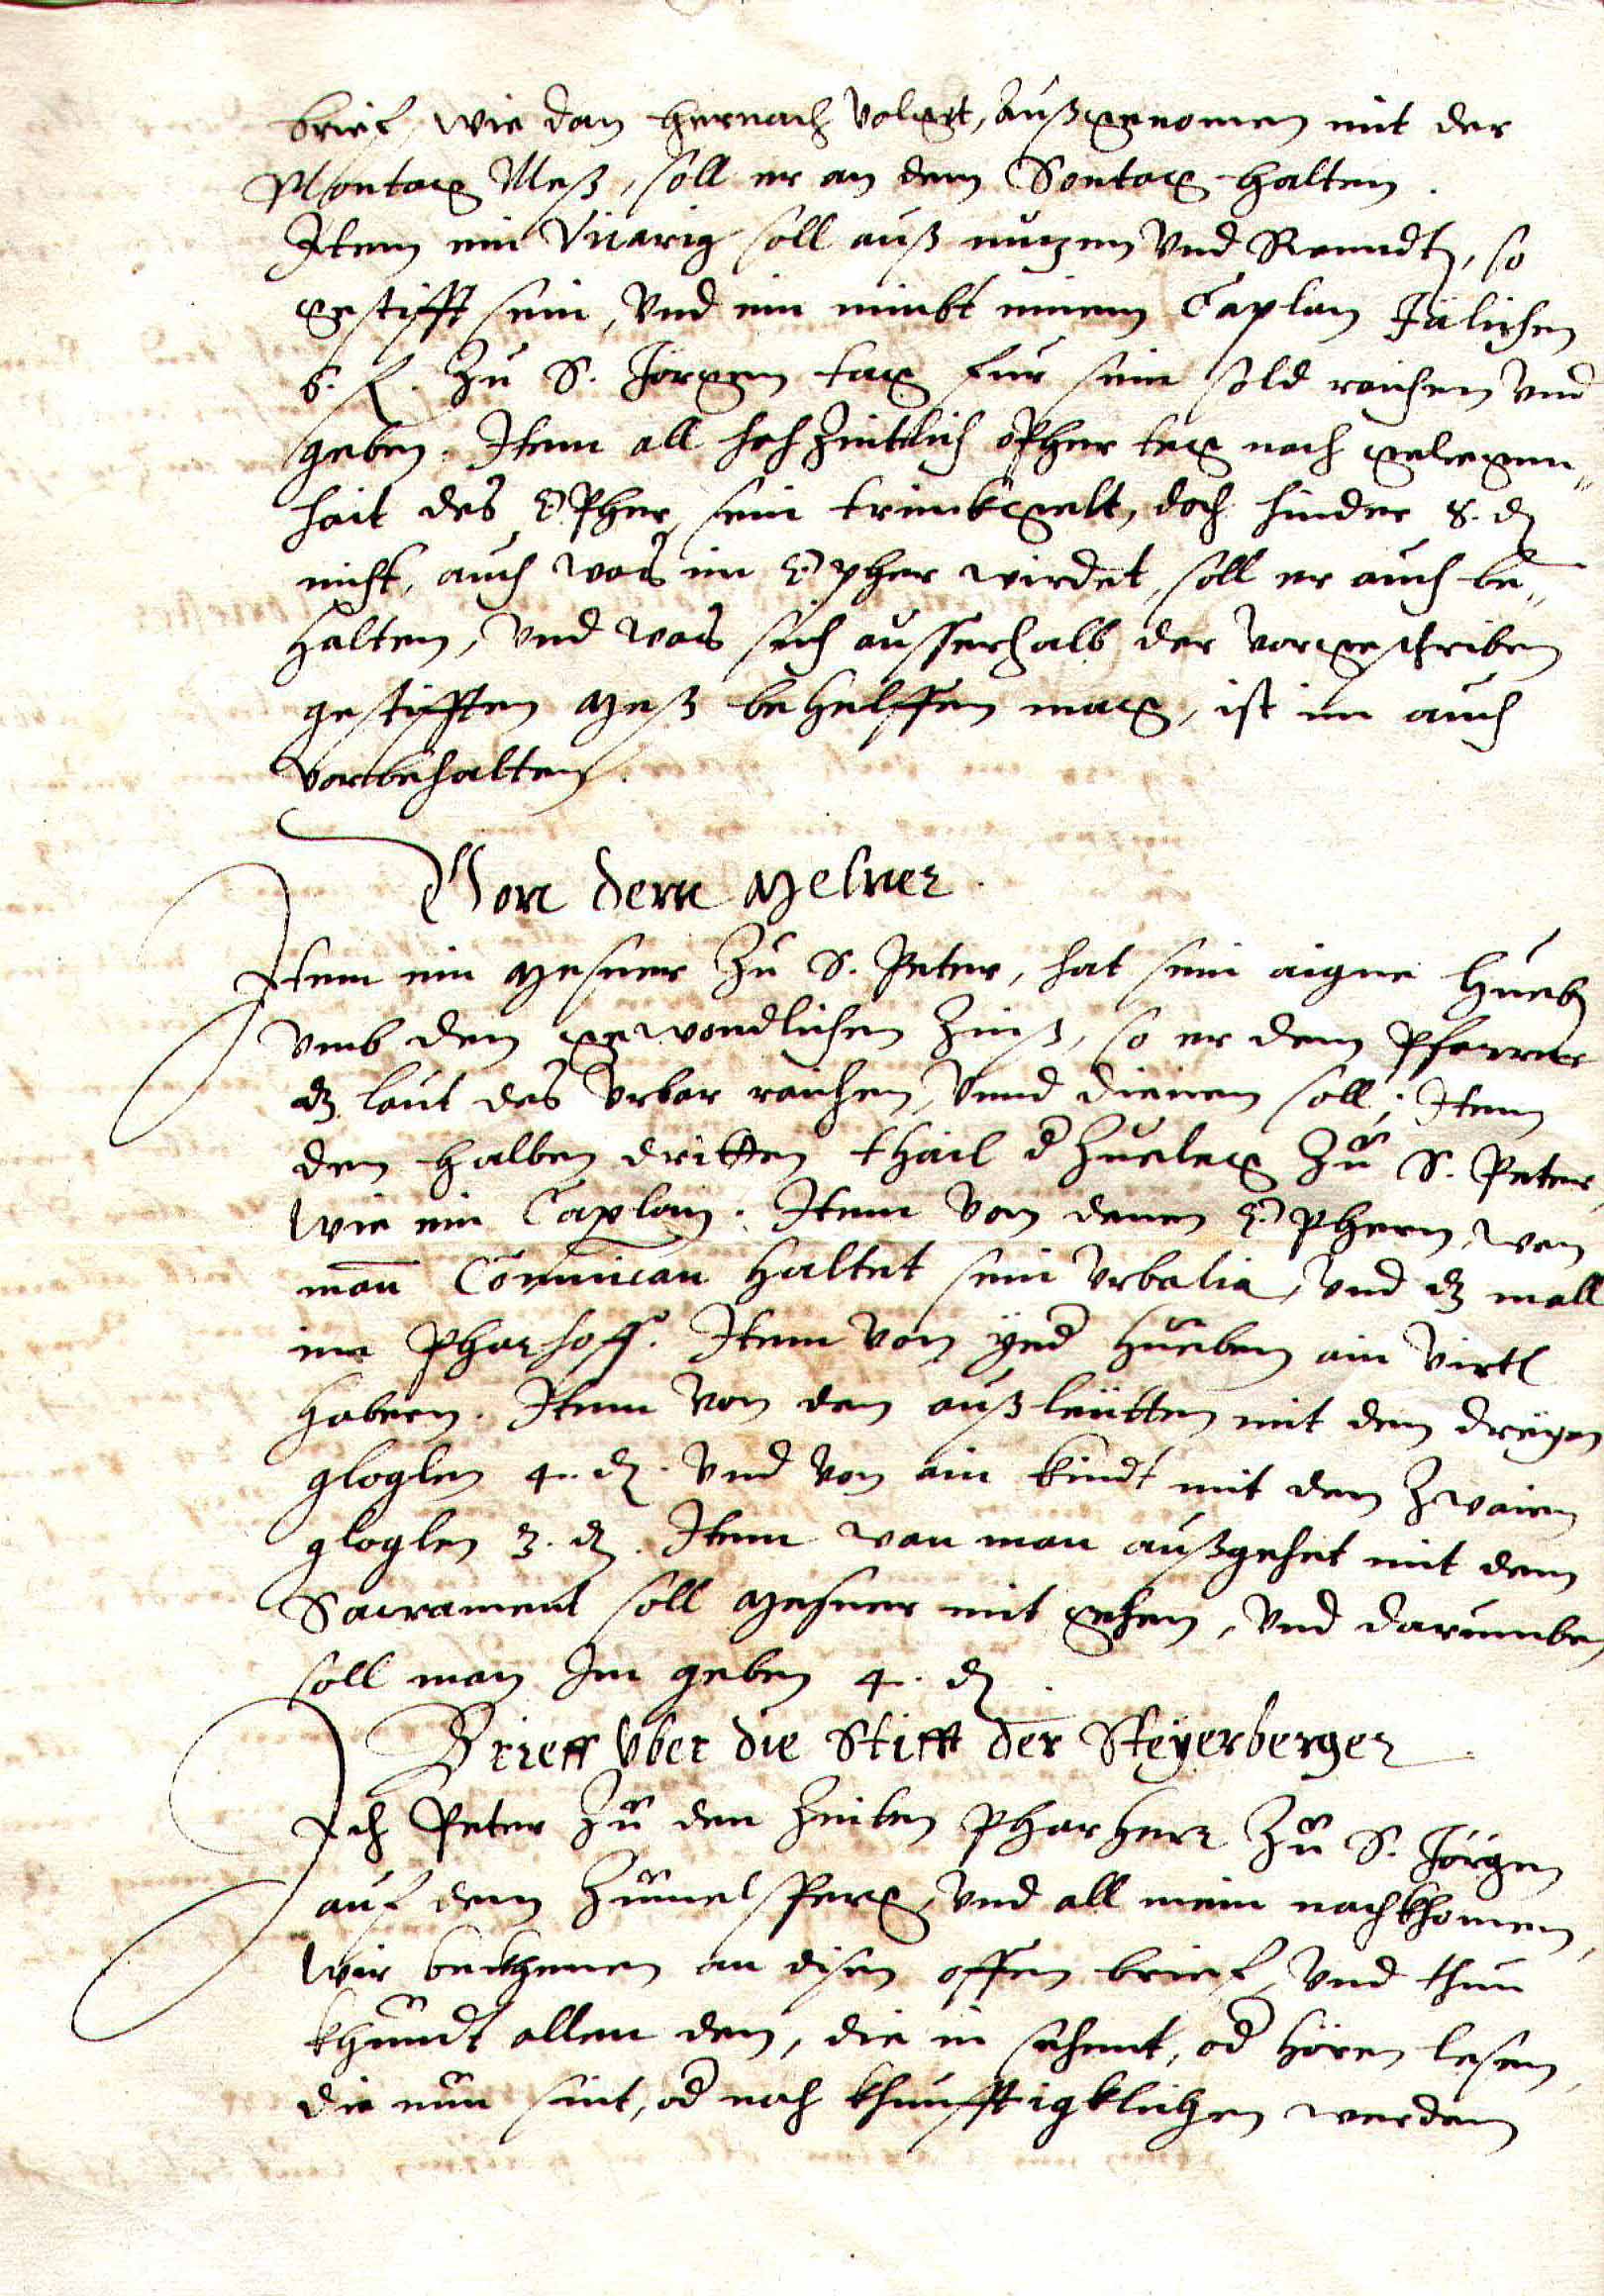 brief, wie dan hernach volget, außgenomen mit der
Montag Meß, soll er an dem Sontag halten.
Item ein Vicarig soll auß nuzen vnd Renndtn, so
gestifft sein, vnd ein nimbt einem Caplan Jälichen
6. f. zu S. Jörgen tag für sein sold raichen vnd
geben. Item all hochzeitlich opher teg nach gelegen„
hait des Opher, sein trinckgelt, doch hinder 8. d
nicht, auch was im Opher wirdet, soll er auch be„
halten, vnd was sich ausserhalb der vorgeschriben
gestifften Meß behelffen mag, ist im auch
vorbehalten.
Von dem Mesner.
Item ein Mesner zu S. Peter, hat sein aigne Hueb
vmb den gewondlichen Zinß, so er dem Pfarrer
dz laut des Vrbar raichen, vnnd dienen soll; Item
den halben dritten thail d Zueleg zu S. Peter,
wie ein Caplan. Item von denen Ophern, wen
man Comunican haltet sein Vrbalia, vnd dz mall
im Pharhoff. Item von yed Hueben ain Virtl
habern. Item von dem außleütten mit den dreyen
gloglen 4. d. vnd von ain kindt mit den zwaien
gloglen 3. d. Item wan man außgehet mit dem
Sacrament soll Mesner mit gehen, vnd darumben
soll man Im geben 4. d.
Brieff vber die Stifft der Steyerberger
Ich Peter zu den Zeiten Pharherr zu S. Jörgen
auf dem Zumelsperg, vnd all mein nachkhomen,
wir bekhenen an disen offen brief, vnd thun
khundt allen den, die in sehent, od hören lesen,
die nun sint, od noch khunfftigklichen werden